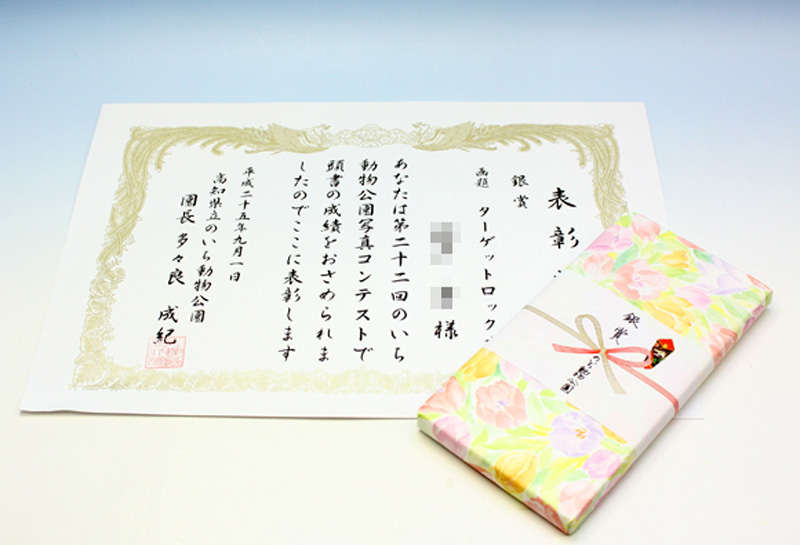 表彰
銀賞
画題 ターゲットロック
様
あなたは第二十二回のいち
動物公園写真コンテストで
頭書の成績をおさめられま
したのでここに表彰します
平成二十五年九月一日
高知県立のいち動物公園
園長 多々良 成紀
銀賞
のいち動物公園